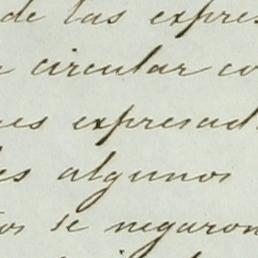 de las expres
circular co
es expresad
es algunos
os se negaron